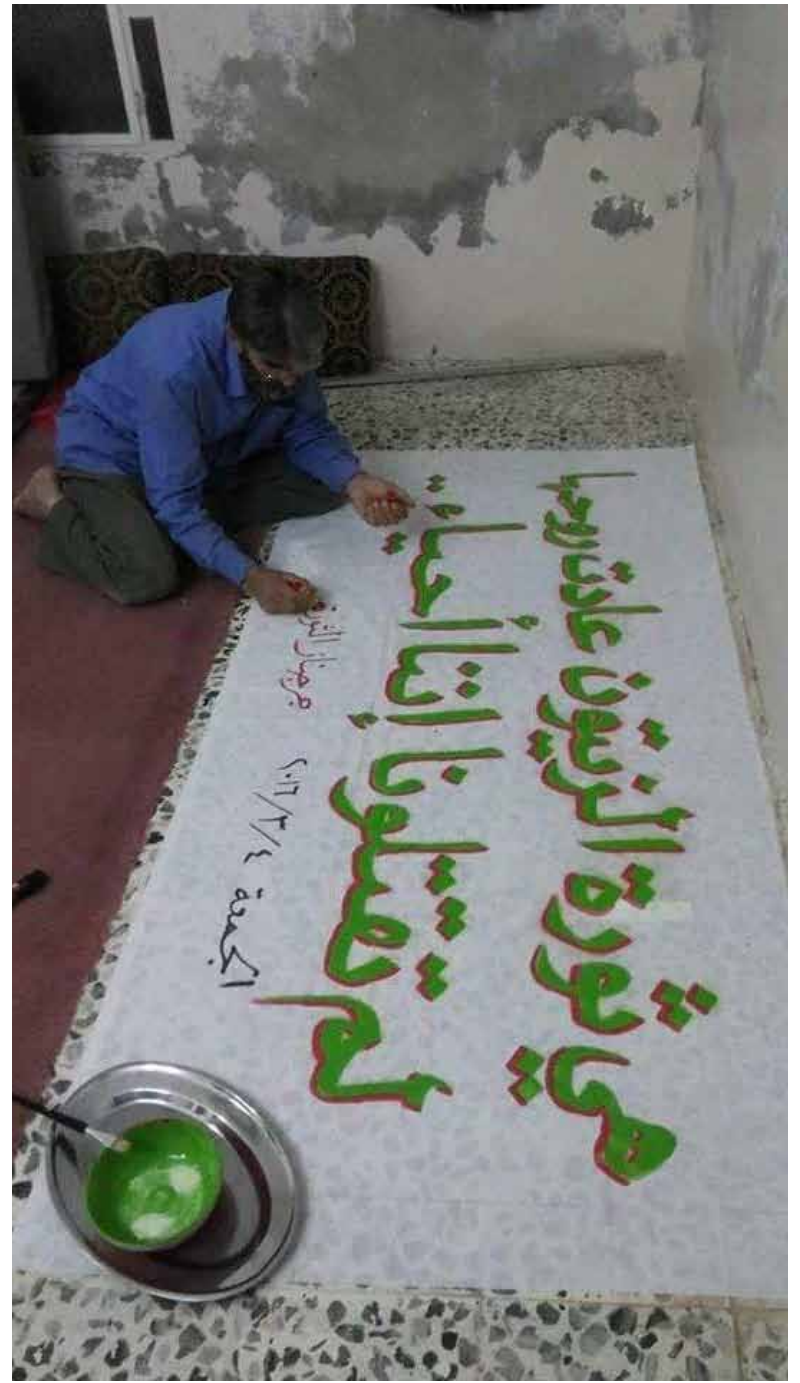 هي ثورة الزيتون عادت روحها
لم تقتلونا إننا أحياء
الجمعة ٢٠١٦/٣/٤ جرجناز الثورة